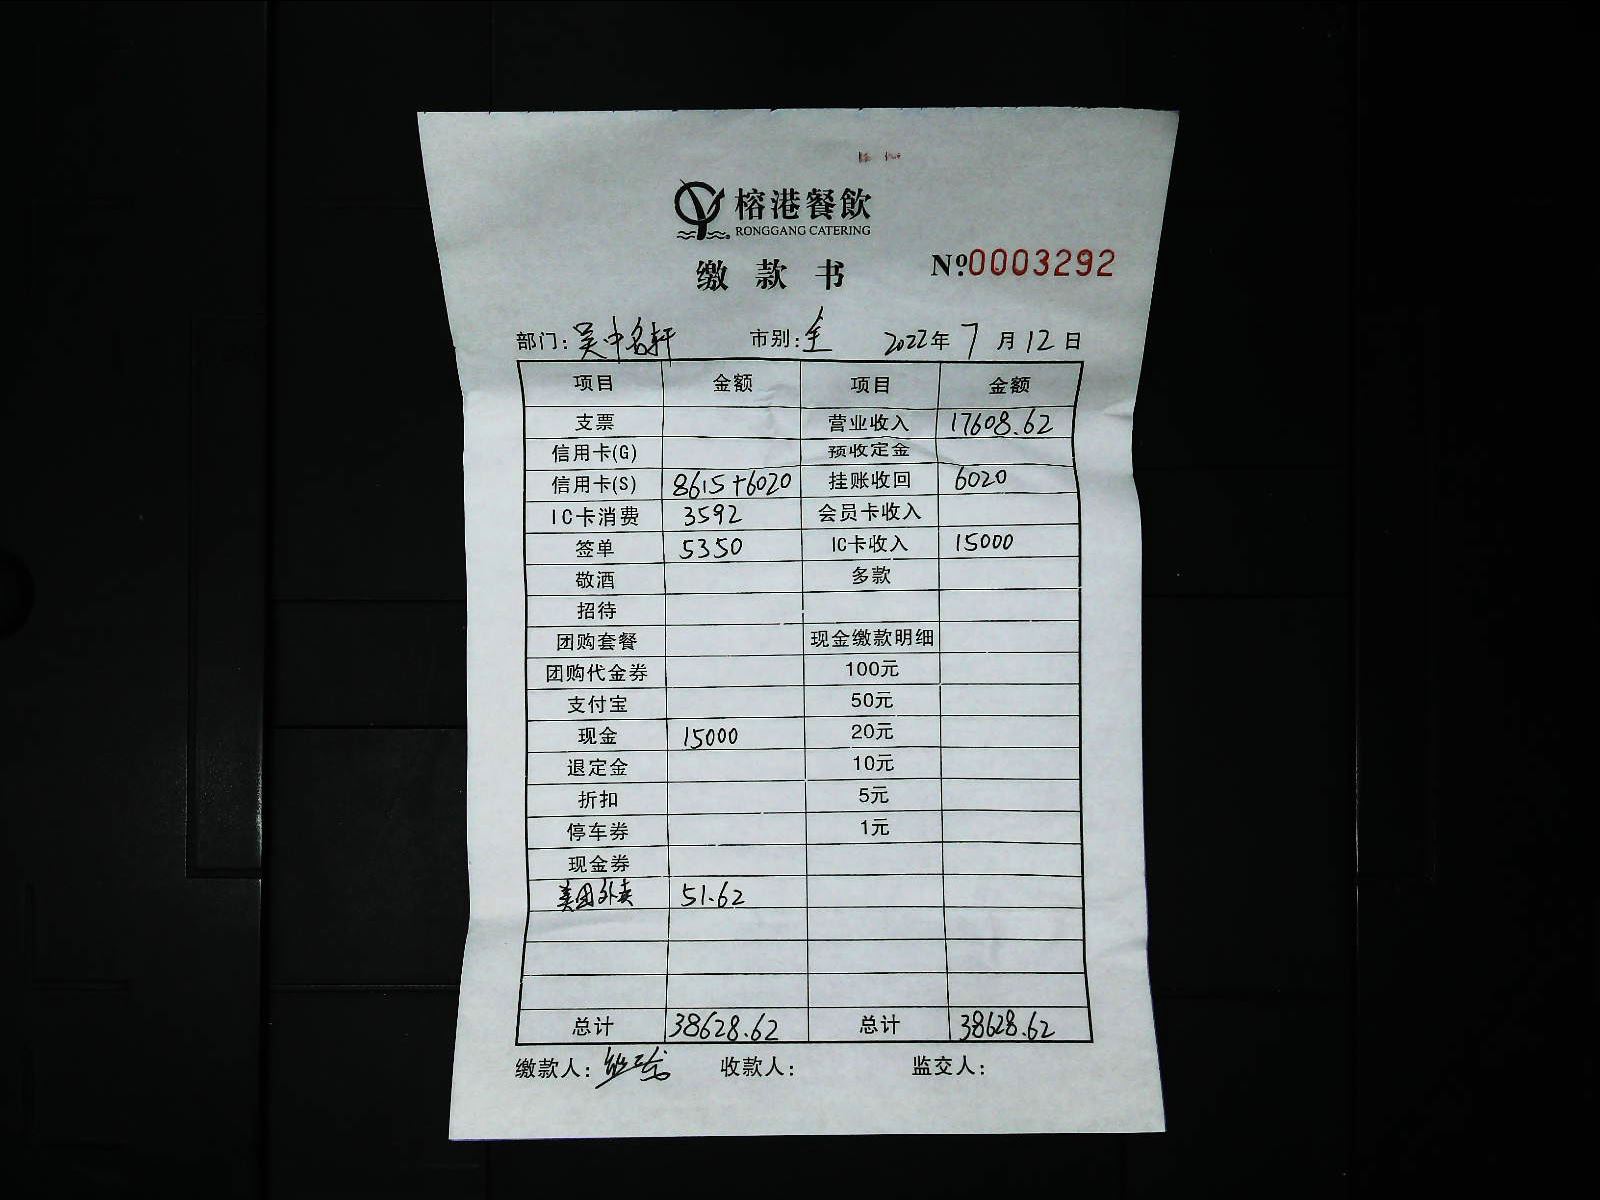 榕港餐飲
RONGGANG CATERING
缴款书 №0003292
部门: 吴中名轩 市别: 全 2022年7月12日
项目 金额 项目 金额
支票 营业收入 17608.62
信用卡(G) 预收定金
信用卡(S) 8615+6020 挂账收回 6020
IC卡消费 3592 会员卡收入
签单 5350 IC卡收入 15000
敬酒 多款
招待
团购套餐 现金缴款明细
团购代金券 100元
支付宝 50元
现金 15000 20元
退定金 10元
折扣 5元
停车券 1元
现金券
美团外卖 51.62
总计 38628.62 总计 38628.62
缴款人: 收款人: 监交人: